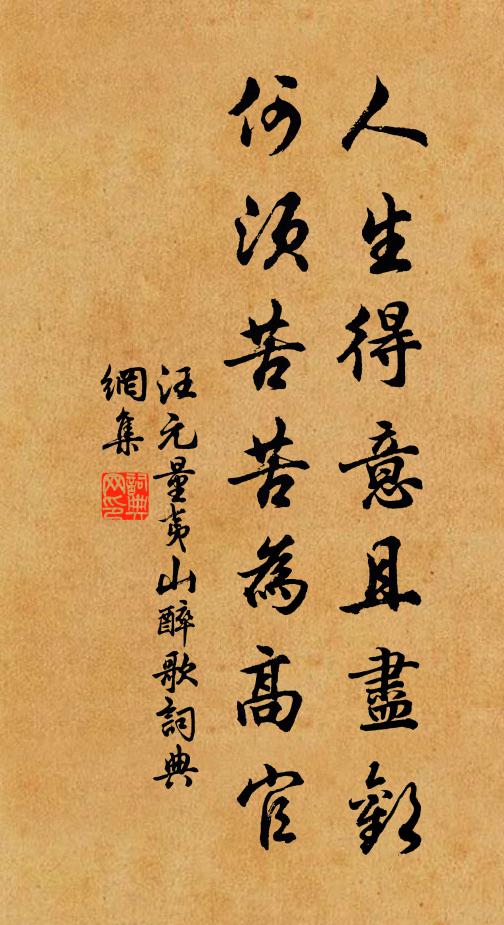 人生得意且盡歡
何須苦苦為高官
汪元量夷山醉歌詞典
網集
詞典
网印